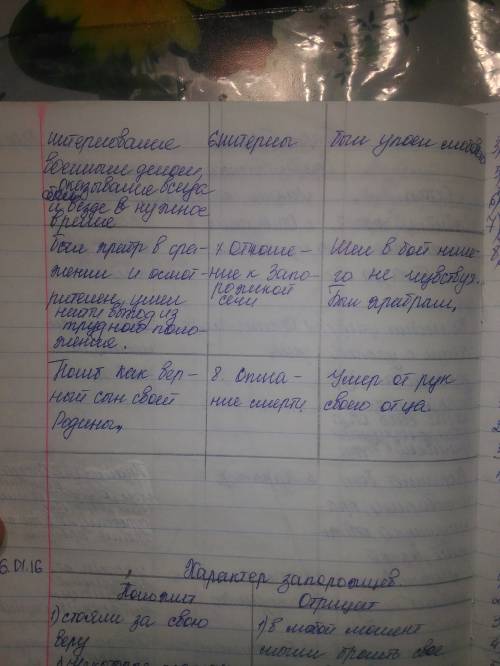 интересование
военным делом,
оказывание всегда
и везде в нужное
время
6 интересы
был упоен любовью
Был храбр в сра-
жении и осмот-
рителен, умел
найти выход из
трудного поло-
жения.
7. Отноше-
ние к Запо-
рожской
сечи
Шел в бой ниче-
го не чувствуя.
Был храбрым.
Погиб как вер-
ный сын своей
Родины.
8. Описа-
ние смерти
Умер от рук
своего отца
6.01.16
Характер запорожцев
Положит
Отрицат
1) стояли за свою
веру
1) в любой момент
могли бросить свое